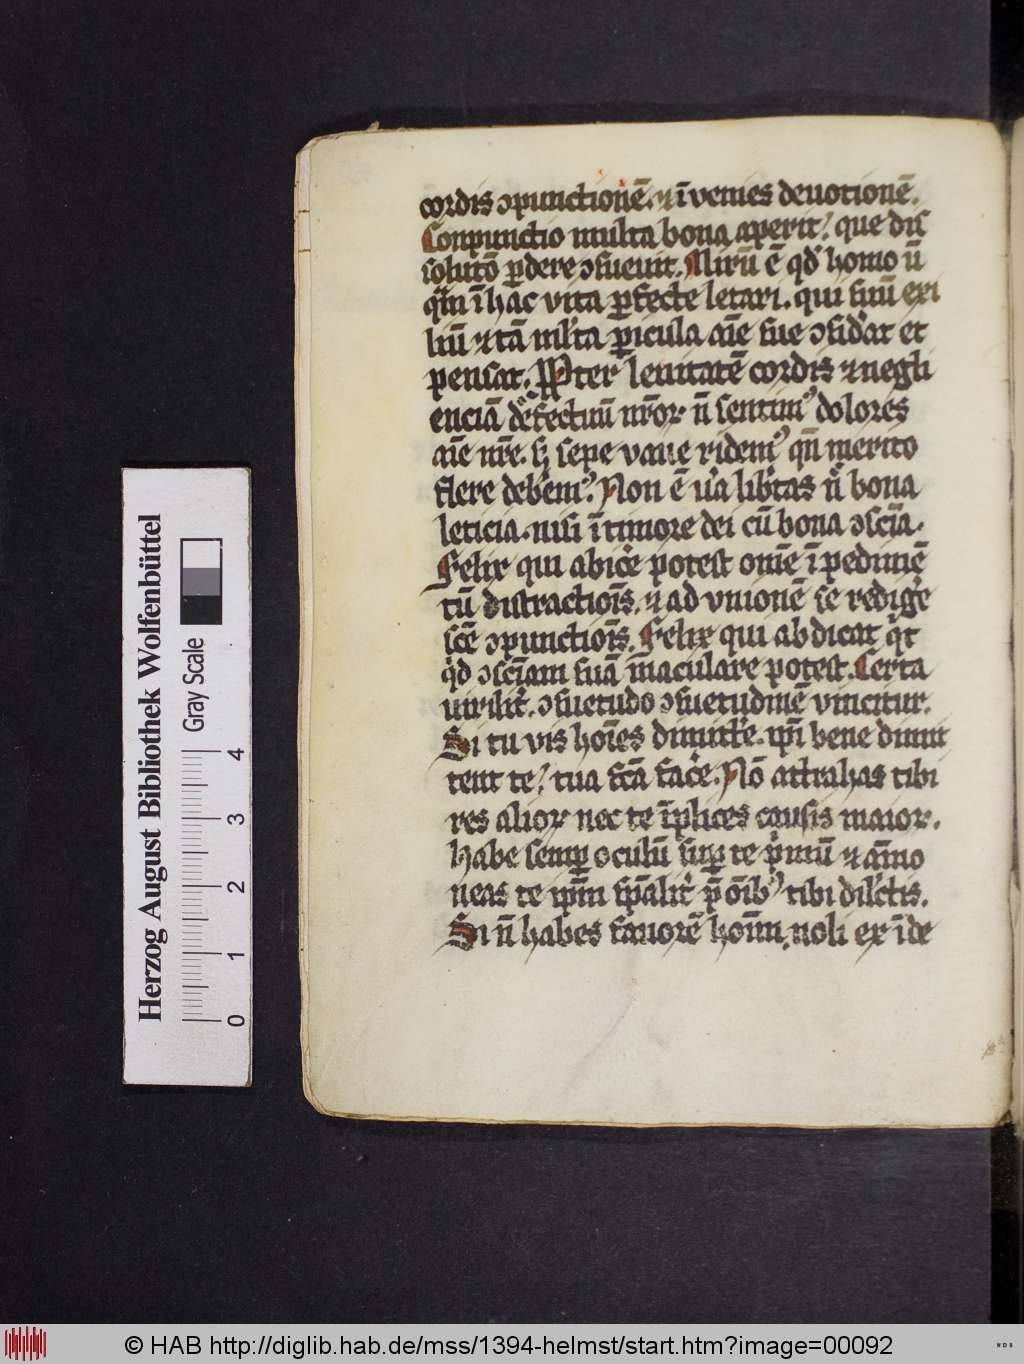 cordis ↄpunctionē. ⁊ īvenies deuotionē.
Conpunctio multa bona aperit, que dis
solutō ꝑdere ↄsueuit. Mirū ē qď homo ū
qͣm ī hac vita ꝑfecte letari. qui suū exi
liū ⁊ tā ml̓ta ꝑicula aīe sue ↄsid̓at et
pensat. Pꝓter leuitatē cordis ⁊ negli
enciā defectuū nr̄oꝝ n̄ sentimꝰ dolores
aīe nr̄e. sꝫ sepe vane ridemꝰ qn̄ merito
flere deb̓emꝰ. Non ē u̓a lib̓tas n̓ bona
leticia. nisi ī timore dei cū bona ↄscīa.
Felix qui abic̓e potest om̄e īpedimē
tū distractiōis. ⁊ ad vnionē se redig̓e
sc̄e ↄpunctiōis. Felix qui abdicat qͥt
qͥd ↄscīam suā īmaculare potest. Certa
uirilit̓. ↄsuetudo ↄsuetudinē vincitur.
Si tu vis hoīes dimitt̓e. ip̄i bene dimit
tent te, tua fc̄a fac̓e. Nō attrahas tibi
res alioꝝ nec te īplices causis maioꝝ.
Habe semꝑ oculū suꝑ te pͥmū ⁊ āmo
neas te ip̄m sp̄alit̓ p̄ oīb̓ꝰ tibi dil̓ctis.
Si n̄ habes fauorē hoīm, noli ex īde
Herzog August Bibliothek Wolfenbüttel
Gray Scale
0 1 2 3 4
© HAB http://diglib.hab.de/mss/1394-helmst/start.htm?image=00092